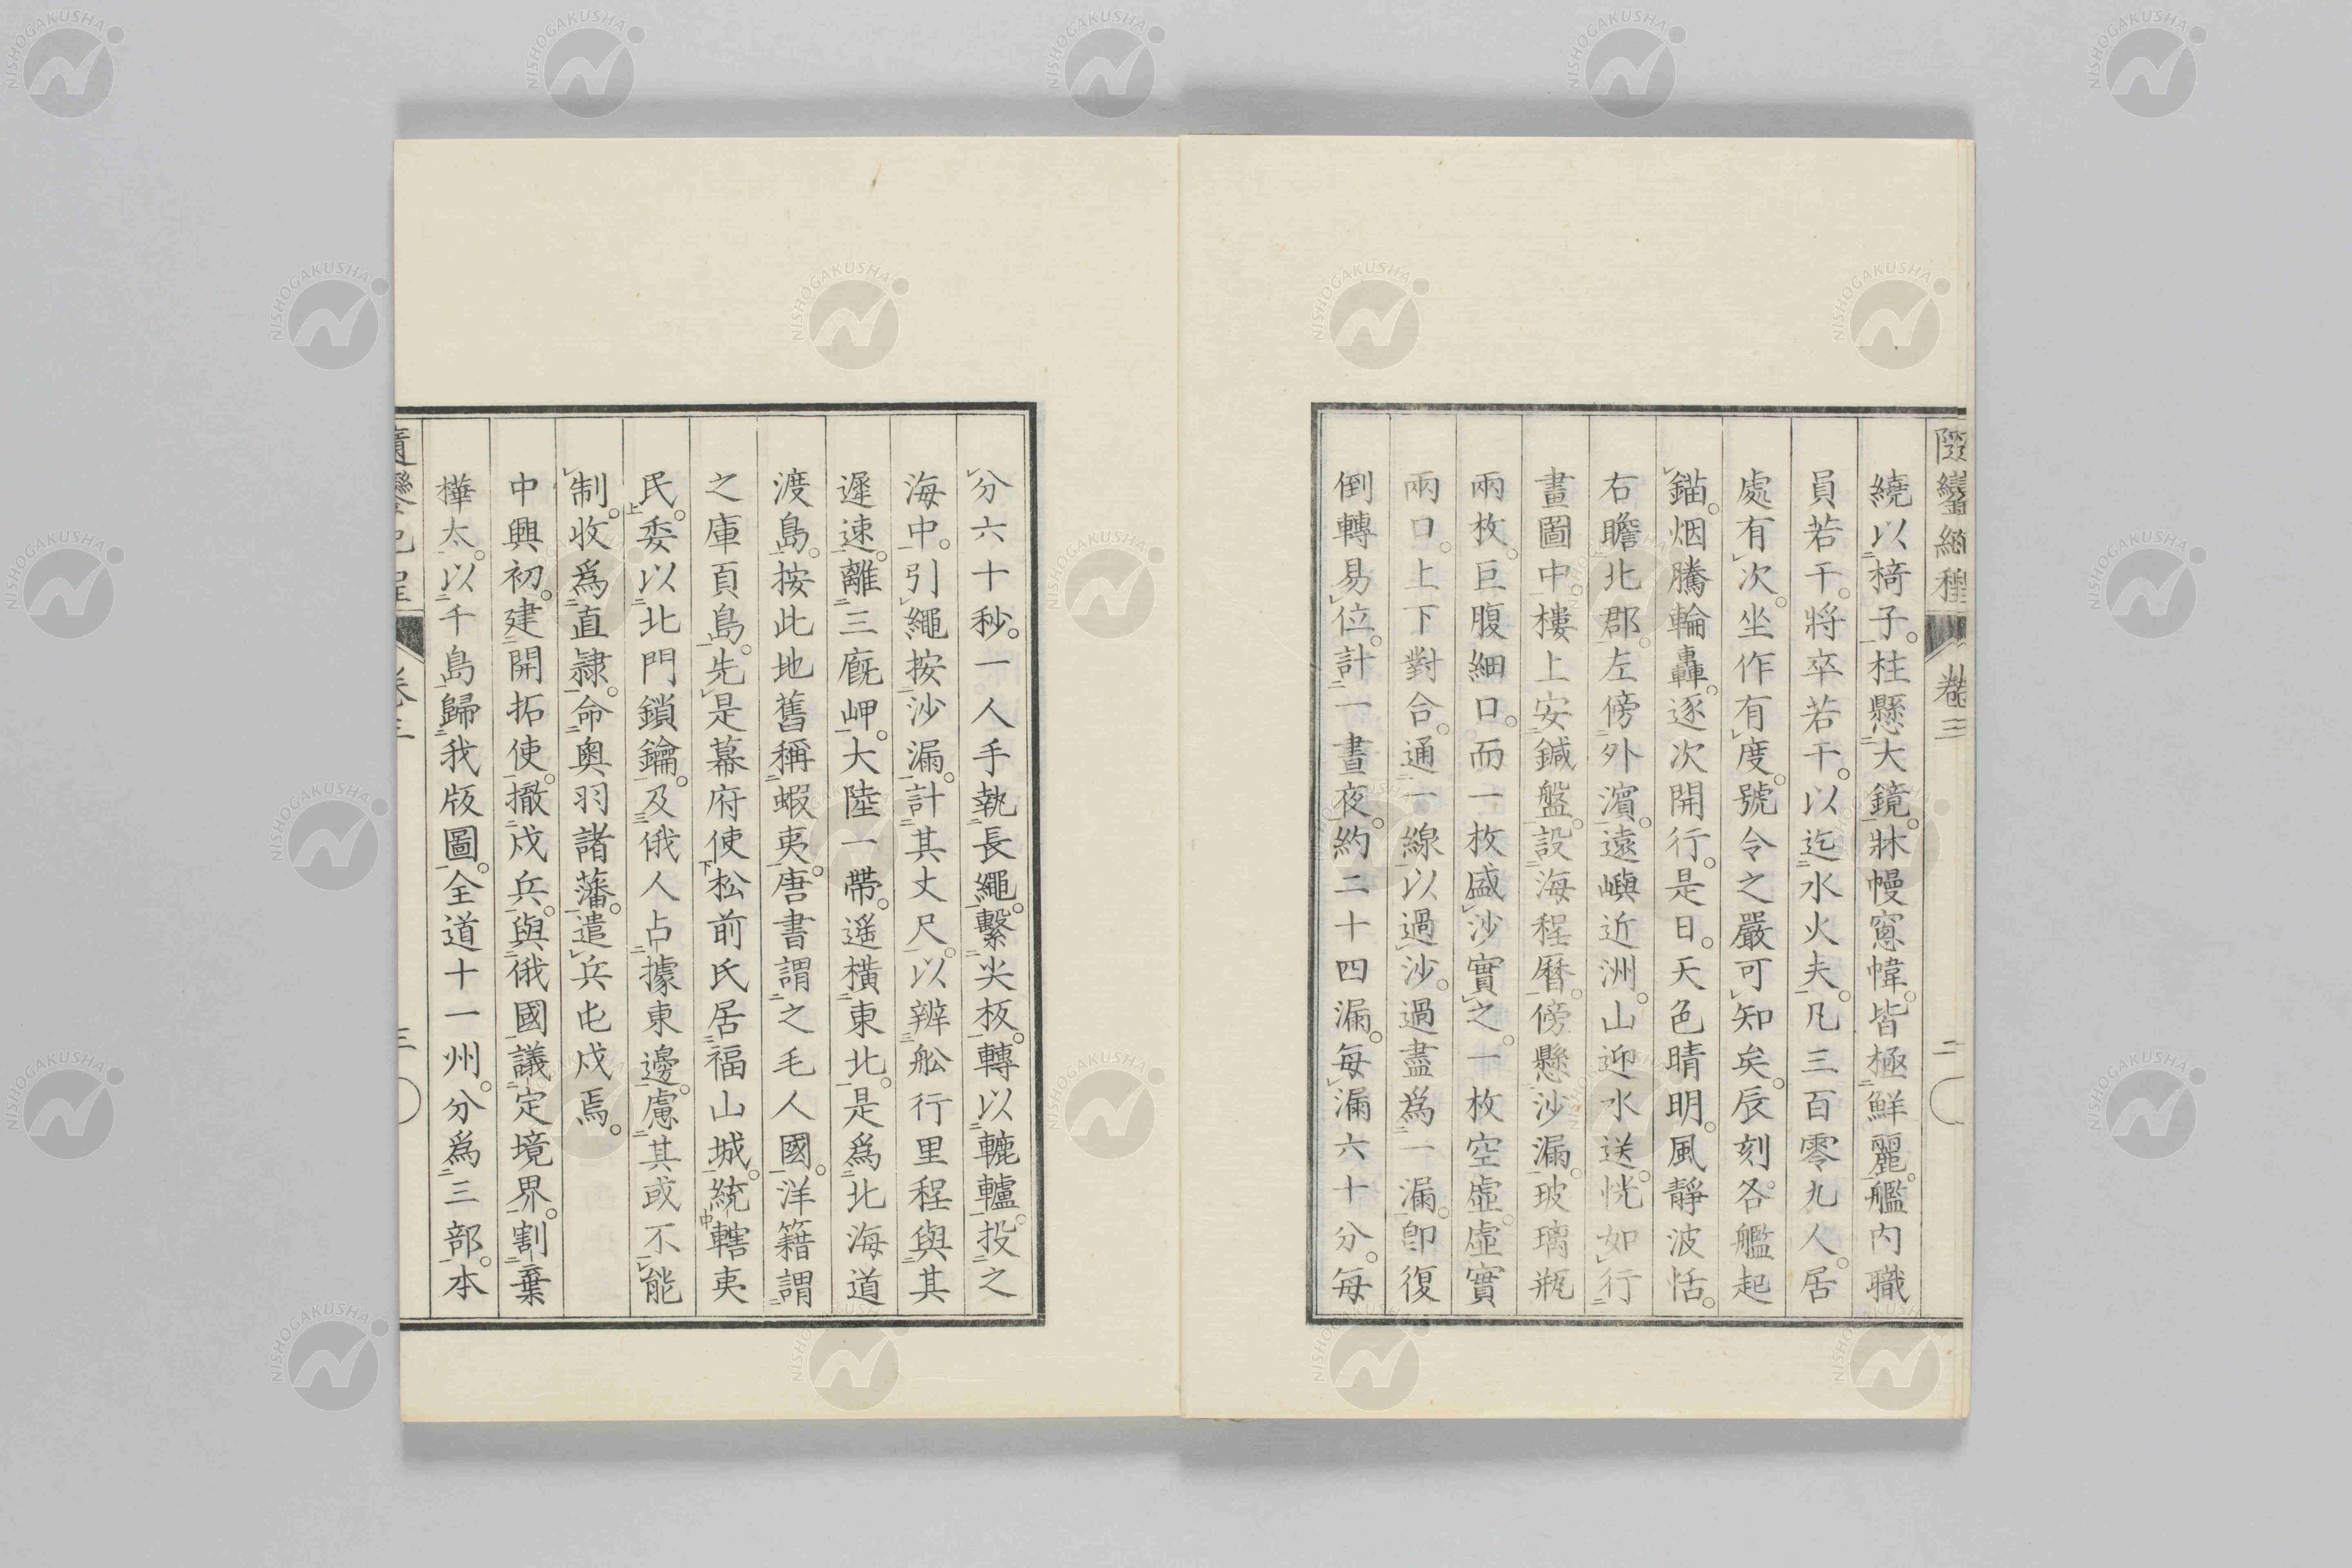 繞以椅子。柱懸大鏡。牀幔窻幃。皆極鮮麗。艦内職
員若干。將卒若干。以迄水火夫。凡三百零九人。居
處有次。坐作有度。號令之嚴可知矣。辰刻。各艦起
錨。烟騰輪轟。逐次開行。是日。天色晴明。風靜波恬。
右瞻北郡。左傍外濱。遠嶼近洲。山迎水送。恍如行
畫圖中。樓上安鍼盤。設海程曆。傍懸沙漏。玻璃瓶
兩枚。巨腹細口。而一枚盛沙實之。一枚空虛。虛實
兩口。上下對合。通一線以過沙。過盡爲一漏。卽復
倒轉易位。計一晝夜。約二十四漏。每漏六十分。每
分六十秒。一人手執長繩。繫尖板。轉以轆轤。投之
海中。引繩按沙漏。計其丈尺。以辨舩行里程與其
遲速。離三廐岬。大陸一帶。遥橫東北。是爲北海道
渡島。按此地舊稱蝦夷。唐書謂之毛人國。洋籍謂
之庫頁島。先是幕府使松前氏居福山城。統轄夷
民。委以北門鎖鑰。及俄人占據東邊。慮其或不能
制。收爲直隷。命奧羽諸藩。遣兵屯戍焉。
中興初。建開拓使。撤戍兵。與俄國議定境界。割棄
樺太。以千島歸我版圖。全道十一州。分爲三部。本
卷三
二
NISHOGAKUSHA